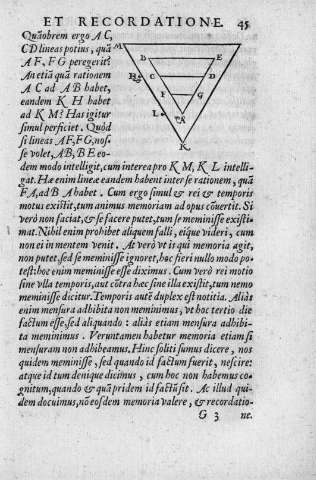 ET RECORDATIONE. 45
Quāobrem ergo AC,
CD lineas potius, quā
AF, FG peregerit?
An etiā quā rationem
AC ad AB habet,
eandem KH habet
ad KM? Has igitur
simul perficiet. Quòd
si lineas AF, FG, nos-
se volet, AB, BE eo-
M
D E
H B C
F G
L
A
K
dem modo intelligit, cum interea pro KM, KL intelli-
gat. Hæ enim lineæ eandem habent inter se rationem, quā
FA, ad BA habet. Cum ergo simul & rei & temporis
motus existit, tum animus memoriam ad opus cōuertit. Si
verò non faciat, & se facere putet, tum se meminisse existi-
mat. Nihil enim prohibet aliquem falli, eique videri, cum
non ei in mentem venit. At verò vt is qui memoria agit,
non putet, sed se meminisse ignoret, hoc fieri nullo modo po-
test: hoc enim meminisse esse diximus. Cum verò rei motio
sine vlla temporis, aut cōtrà hæc sine illa existit, tum nemo
meminisse dicitur. Temporis autē duplex est notitia. Aliàs
enim mensura adhibita non meminimus, vt hoc tertio die
factum esse, sed aliquando: aliàs etiam mensura adhibi-
ta meminimus. Veruntamen habetur memoria etiam si
mensuram non adhibeamus. Hinc soliti sumus dicere, nos
quidem meminisse, sed quando id factum fuerit, nescire:
atque id tum denique dicimus, cum hoc non habemus co-
gnitum, quando & quā pridem id factū sit. Ac illud qui-
dem docuimus, nō eosdem memoria valere, & recordatio-
G 3 ne.